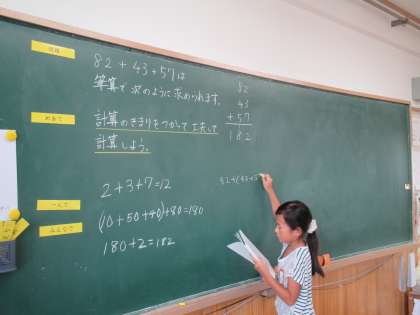 問題
82+43+57は
筆算で次のように求められます。
82
43
+57
182
めあて
計算のきまりをつかって工夫して
計算しよう。
2+3+7=12
(10+50+40)+80=180
180+2=182
82+(43+5
みんなで